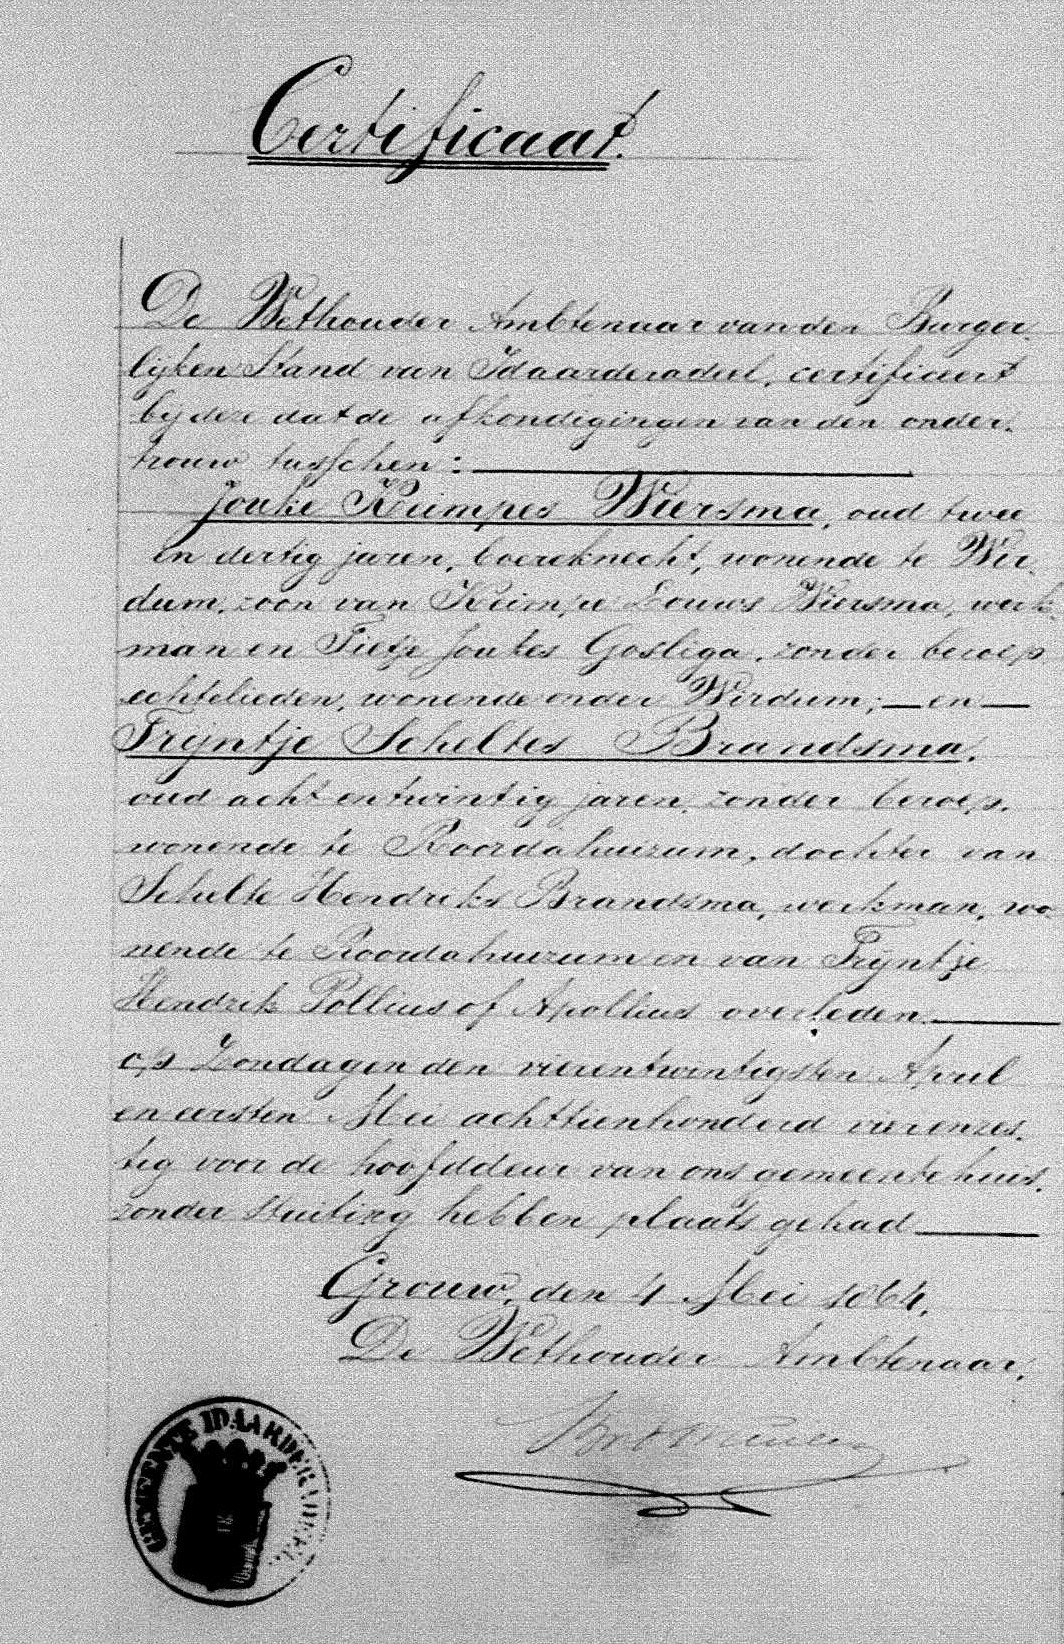 Certificaat.
De Wethouder Ambtenaar van den Burger-
lijken Stand van Idaarderadeel, certificeert
bij deze dat de afkondigingen van den onder-
trouw tusschen:
Jouke Keimpes Wiersma, oud twee
en dertig jaren, boereknecht, wonende te Wir-
dum, zoon van Keimpe Douws Wiersma, werk-
man en Tietje Joukes Gosliga, zonder beroep
echtelieden, wonende onder Wirdum; — en —
Trijntje Scheltes Brandsma,
oud acht en twintig jaren, zonder beroep,
wonende te Roordahuizum, dochter van
Schelte Hendriks Brandsma, werkman, wo-
nende te Roordahuizum en van Trijntje
Hendrik Pollius of Apollius overleden.
op Zondagen den vierentwintigsten April
en eersten Mei achttienhonderd vierenzes-
tig voor de hoofddeur van ons gemeentehuis,
zonder stuiting hebben plaats gehad
Grouw, den 4 Mei 1864.
De Wethouder Ambtenaar,
GEMEENTE IDAARDERADEEL